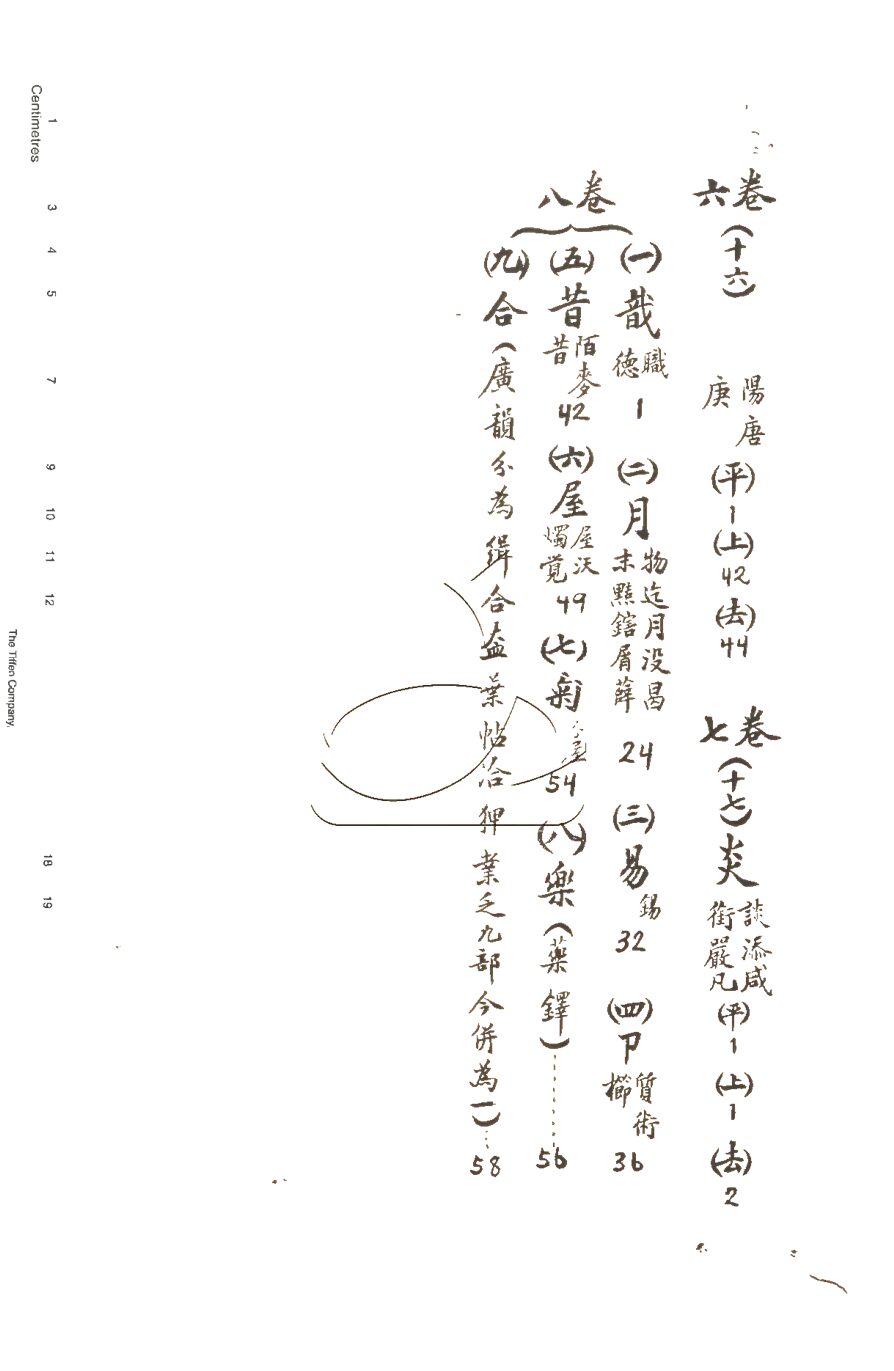 六卷(十六) 陽唐庚 (平) 1 (上) 42 (去) 44
七卷(十七) 炎 談添咸銜嚴凡 (平) 1 (上) 1 (去) 2
八卷
(一) 戠 職德 1 (二) 月 物迄月没曷末黠鎋屑薛 24 (三) 易 錫 32 (四) 卩 質術櫛 36
(五) 昔 陌麥昔 42 (六) 屋 屋沃燭覚 49 (七) 54 (八) 樂(藥鐸)……… 56
(九) 合(廣韻分為緝合盍葉帖洽狎業乏九部今併為一)… 58
Centimetres
1 3 4 5 7 9 10 11 12 18 19
The Tiffen Company,